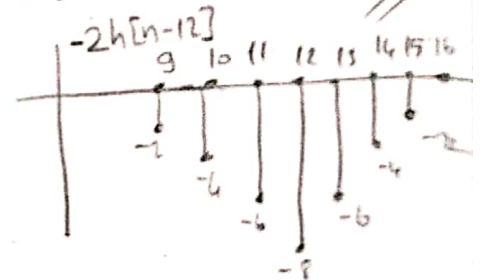 -2h[n-12]
9 10 11 12 13 14 15 16
-2 -4 -6 -8 -6 -4 -2